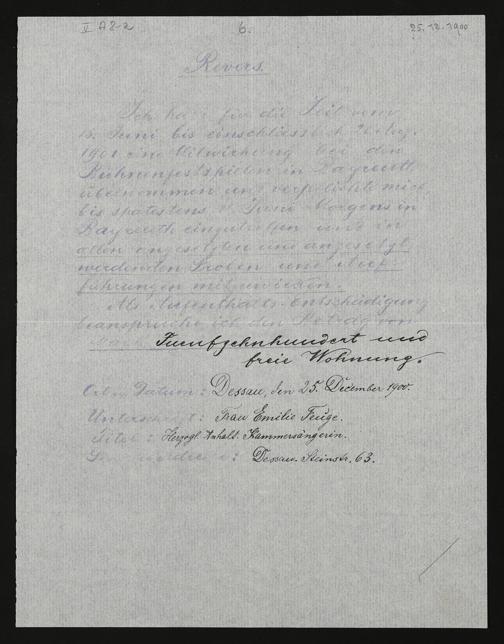 II A 2-2
6.
25.12.1900
Revers.
Ich habe für die Zeit vom
15. Juni bis einschliesslich Aug.
1901 eine Mitwirkung bei den
Bühnenfestspielen in Bayreuth
übernommen und verpflichte mich
bis spätestens Juni Morgens in
Bayreuth einzutreffen und in
allen angesetzten und angesetzt
werdenden Proben und Auf-
führungen mitzuwirken.
Als Aufenthalts-Entschädigung
beanspruche ich den Betrag von
Mark Fuenfzehnhundert und
freie Wohnung.
Ort u. Datum: Dessau, den 25. Dezember 1900.
Unterschrift: Frau Emilie Feuge.
Titel: Herzogl. Anhalt. Kammersängerin.
Dessau. Steinstr. 63.